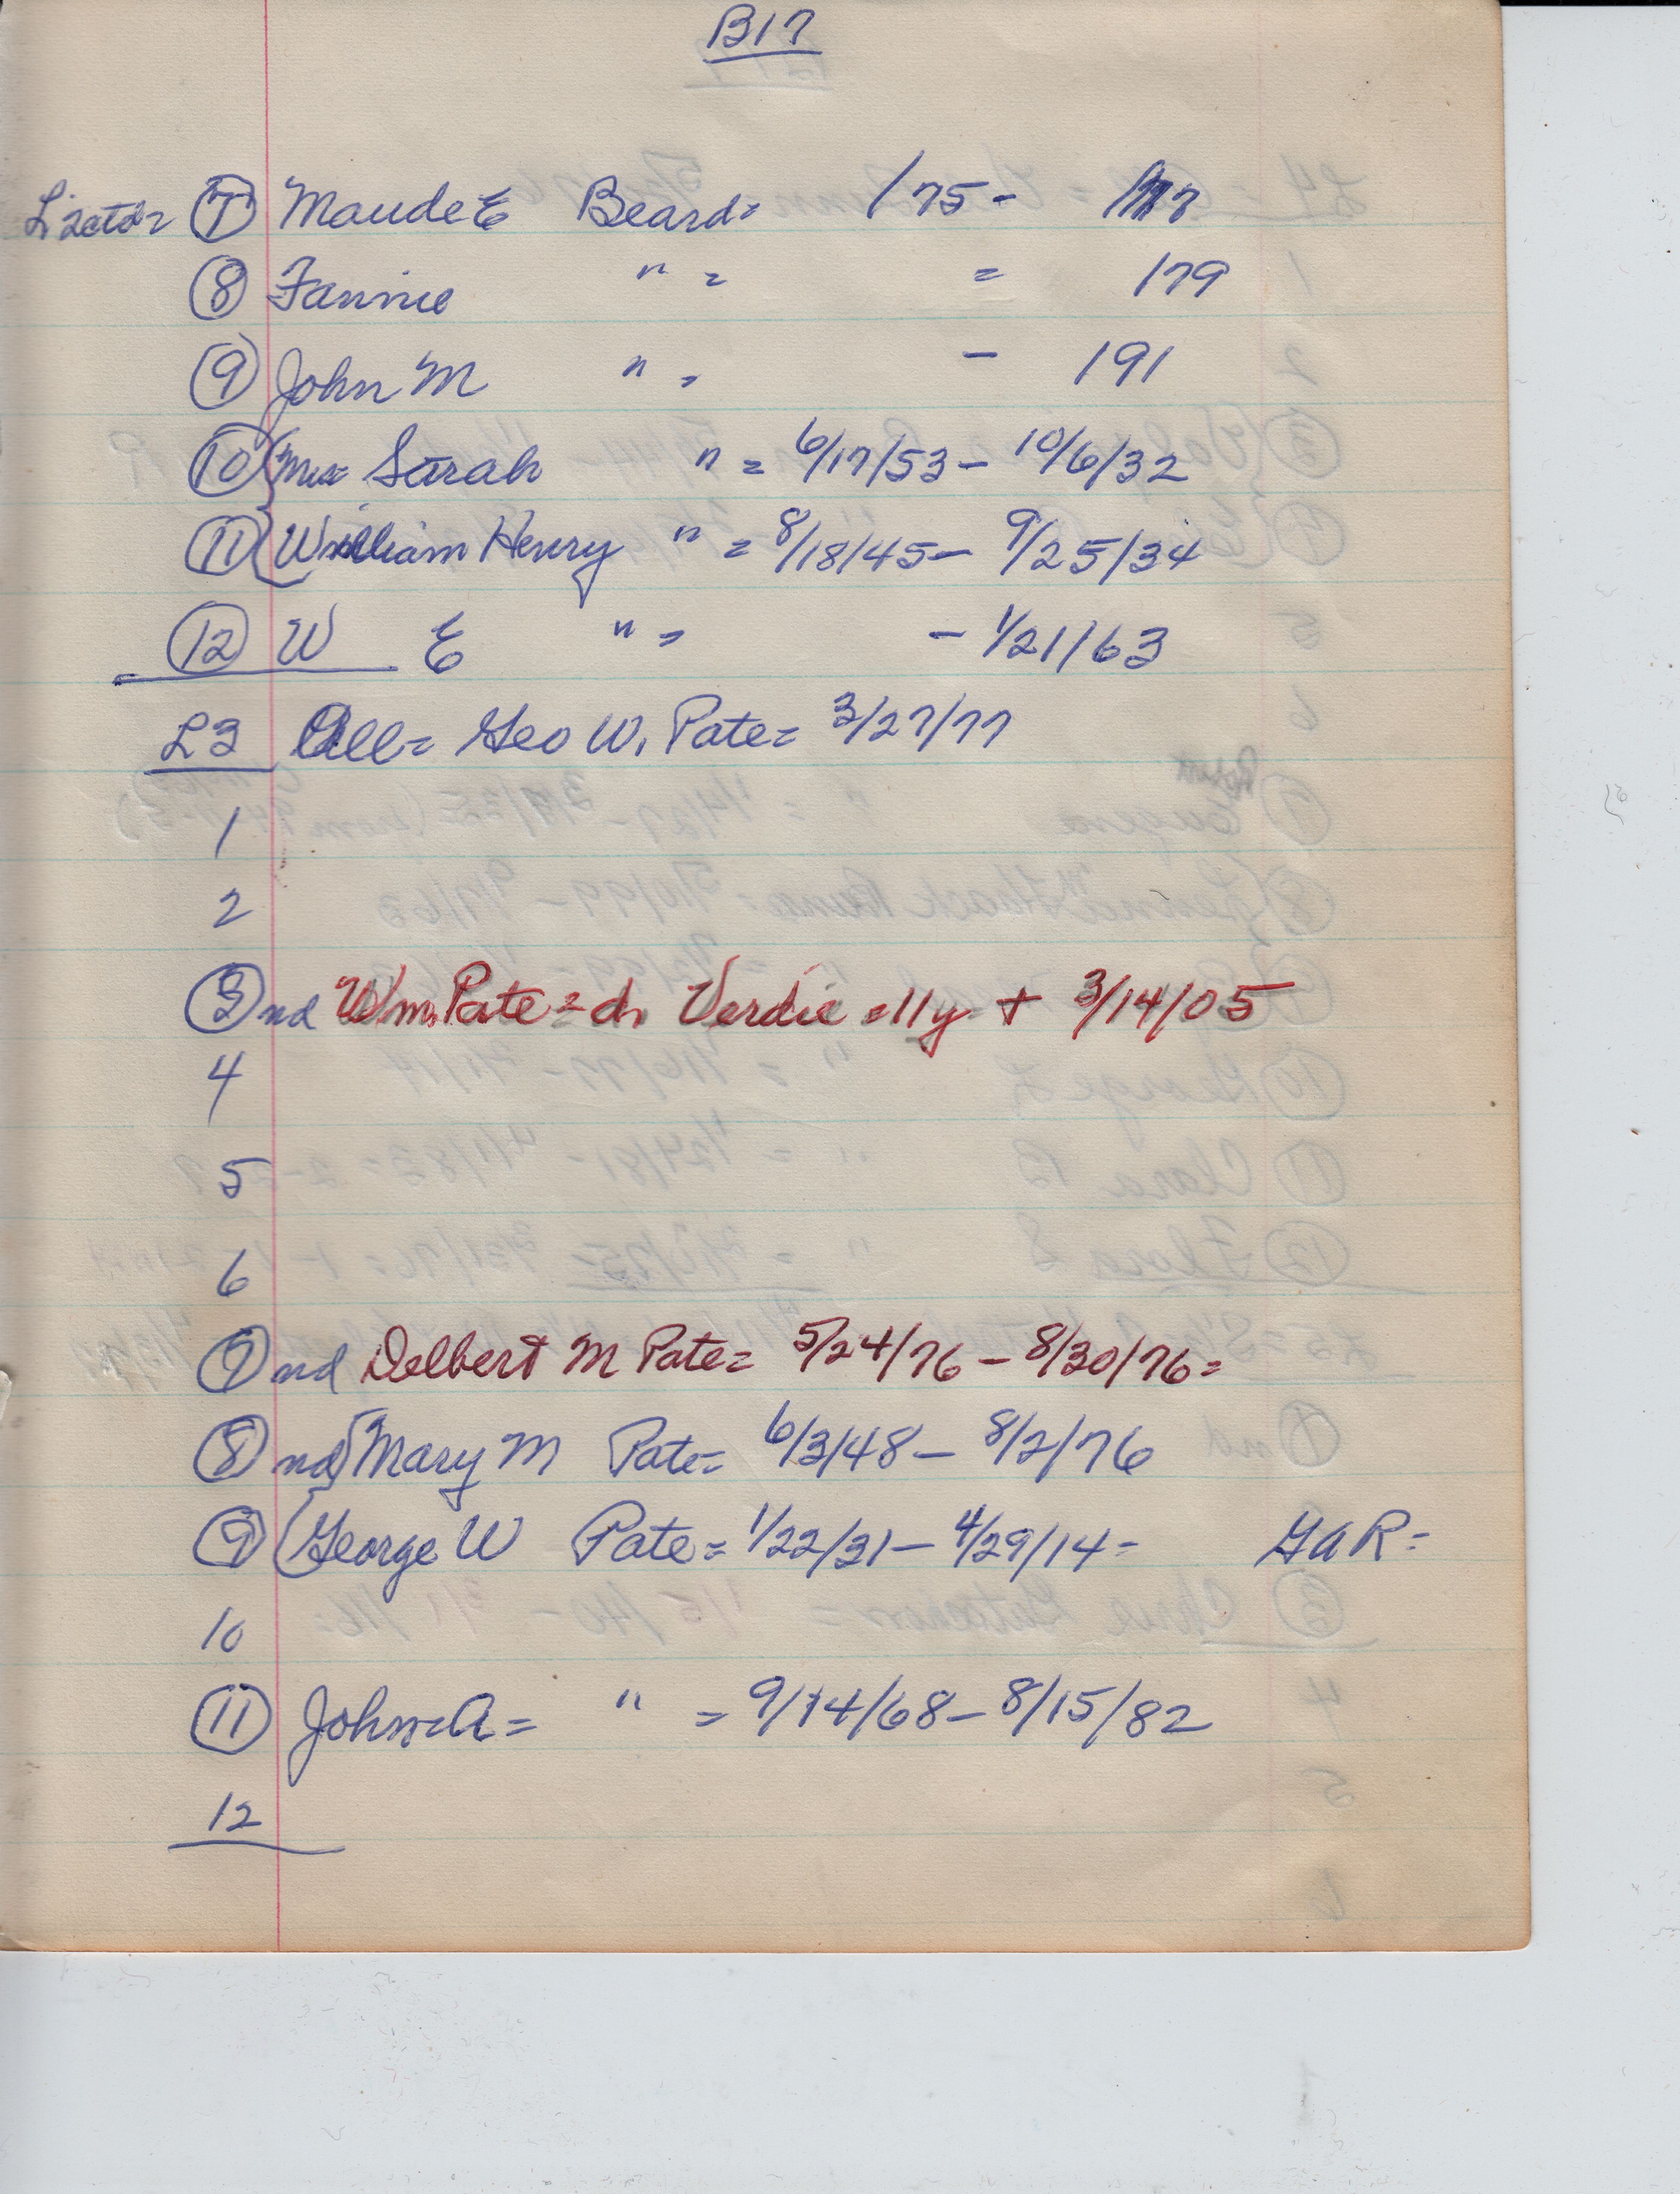 B17
L2ctd= 7 Maude E Beard= /75-
8 Fannie " = = /79
9 John M " = - /91
10 Mrs Sarah " = 6/17/53- 10/6/32
11 William Henry " = 8/18/45- 9/25/34
12 W E " = - 1/21/63
L3 All= Geo W. Pate= 3/27/77
1
2
3 nd Wm. Pate= d. Verdie =11y + 3/14/05
4
5
6
7 nd Delbert M Pate= 5/24/76 - 8/30/76=
8 nd Mary M Pate= 6/3/48- 8/2/76
9 George W Pate= 1/22/31- 4/29/14= GAR=
10
11 John=A= " = 9/14/68- 8/15/82
12